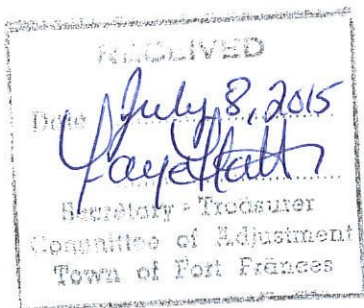 RECEIVED
Date July 8, 2015
Secretary - Treasurer
Committee of Adjustment
Town of Fort Frances